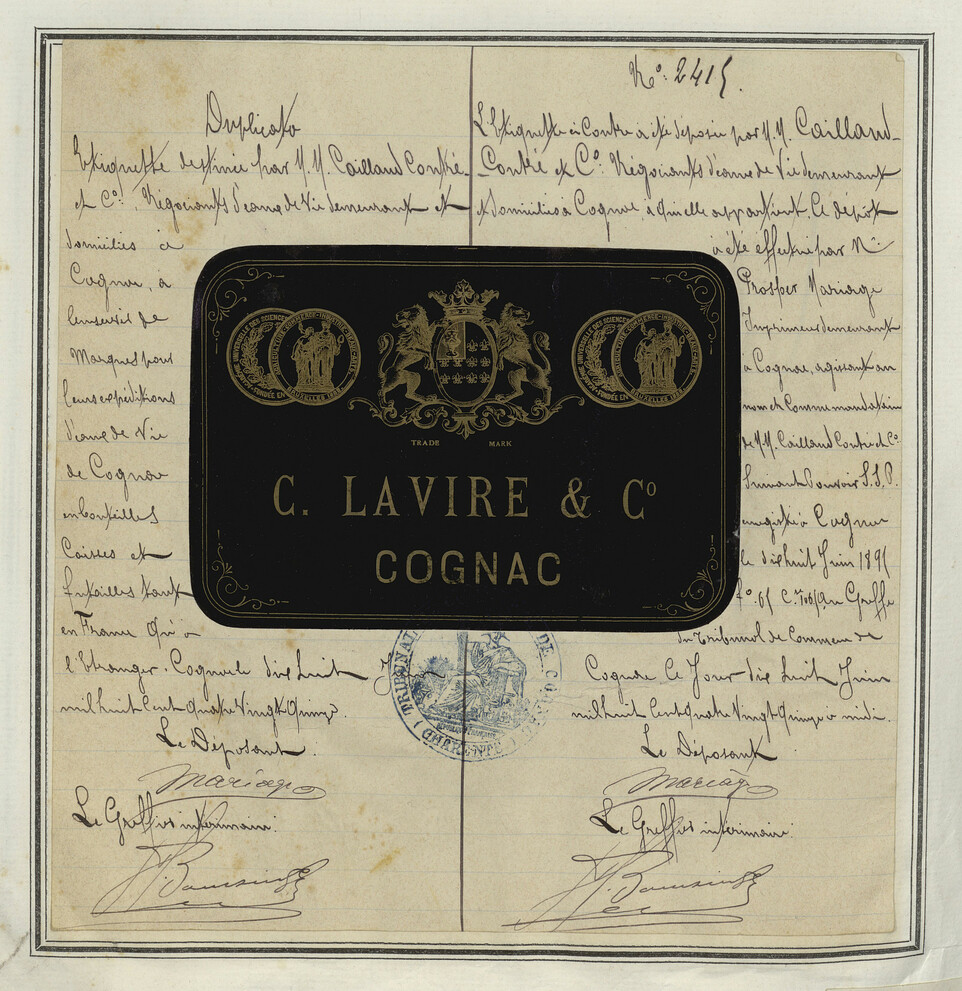 Nº. 2415.
Duplicata
Etiquette destinée par M.M. Caillaud Contré-
et Cº. Négociants d'eaux de Vie demeurant et
domiciliés à
Cognac, à
leur servir de
Marques pour
leurs expéditions
d'eaux de Vie
de Cognac
en bouteilles
Caisses et
futailles tant
en France qu'à
l'Etranger. Cognac le dix huit Juin
mil huit Cent quatre Vingt Quinze.
Le Déposant
Mariage
Le Greffier intérimaire:
L'Etiquette ci Contre a été déposée par M.M. Caillaud-
Contré et Cº. Négociants d'eaux de Vie demeurant
et domiciliés à Cognac, à qui elle appartient. Ce dépôt
a été effectué par Mr.
Prosper Mariage
Imprimeur demeurant
à Cognac, agissant au
nom et Comme mandataire
de M.M. Caillaud Contré et Cº.
Suivant Pouvoir S.S.P.
enregistré à Cognac
le dix huit Juin 1895
fº. 65 C. au Greffe
du Tribunal de Commerce de
Cognac. Ce Jour dix huit Juin
mil huit Cent quatre Vingt Quinze à midi.
Le Déposant
Mariage
Le Greffier intérimaire:
TRADE MARK
C. LAVIRE & Cº
COGNAC
TRIBUNAL DE COGNAC
(CHARENTE)